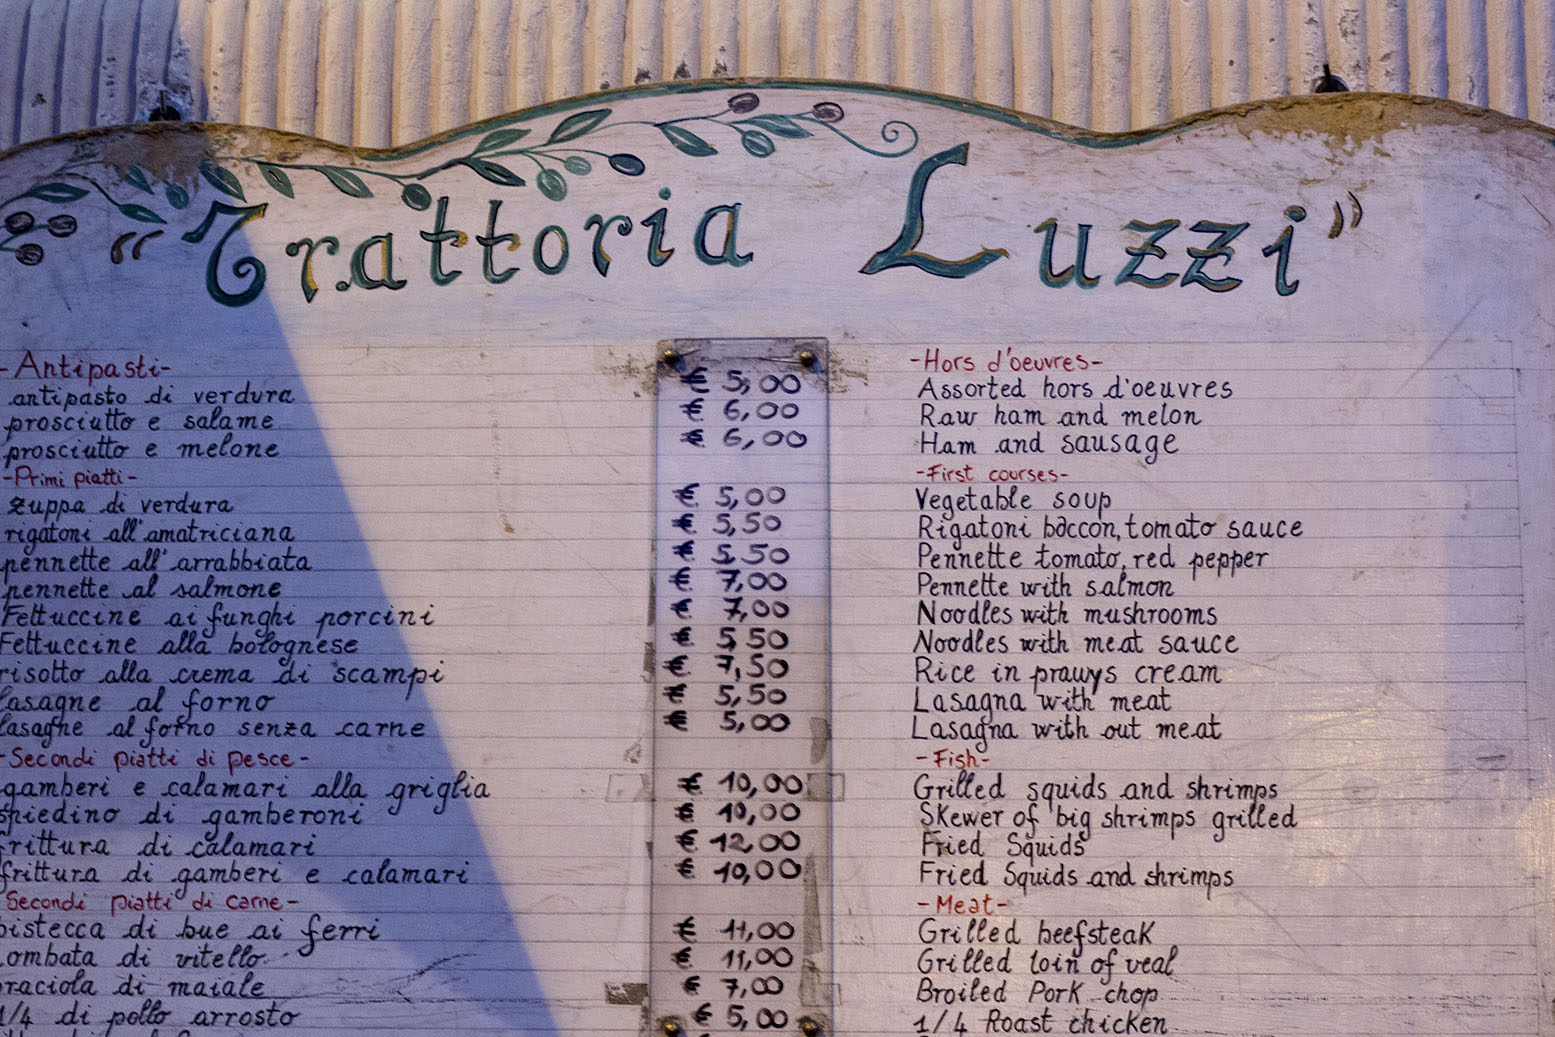 "Trattoria Luzzi"
-Antipasti- -Hors d'oeuvres-
antipasto di verdura € 5,00 Assorted hors d'oeuvres
prosciutto e salame € 6,00 Raw ham and melon
prosciutto e melone € 6,00 Ham and sausage
-Primi piatti- -First courses-
zuppa di verdura € 5,00 Vegetable soup
rigatoni all'amatriciana € 5,50 Rigatoni baccon, tomato sauce
pennette all'arrabbiata € 5,50 Pennette tomato, red pepper
pennette al salmone € 7,00 Pennette with salmon
Fettuccine ai funghi porcini € 7,00 Noodles with mushrooms
Fettuccine alla bolognese € 5,50 Noodles with meat sauce
risotto alla crema di scampi € 7,50 Rice in prawys cream
lasagne al forno € 5,50 Lasagna with meat
lasagne al forno senza carne € 5,00 Lasagna with out meat
-Secondi piatti di pesce- -Fish-
gamberi e calamari alla griglia € 10,00 Grilled squids and shrimps
spiedino di gamberoni € 10,00 Skewer of big shrimps grilled
frittura di calamari € 12,00 Fried Squids
frittura di gamberi e calamari € 10,00 Fried Squids and shrimps
Secondi piatti di carne- -Meat-
bistecca di bue ai ferri € 11,00 Grilled beefsteak
lombata di vitello € 11,00 Grilled loin of veal
braciola di maiale € 7,00 Broiled Pork chop
1/4 di pollo arrosto € 5,00 1/4 Roast chicken